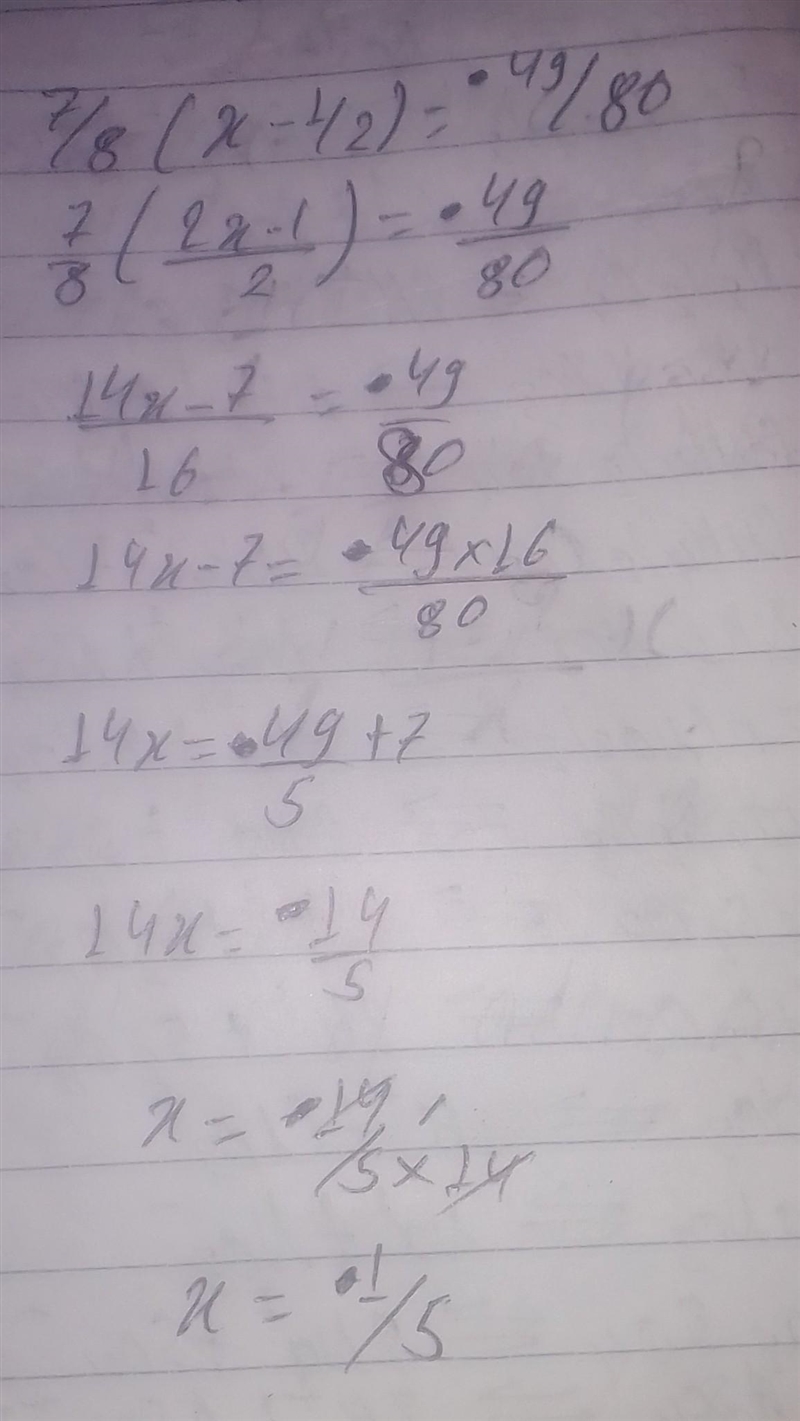 7/8 (x - 1/2) = -49/80
7/8 (2x-1/2) = -49/80
14x-7/16 = -49/80
14x-7 = -49×16/80
14x = -49/5 +7
14x = -14/5
x = -14/5×14
x = -1/5